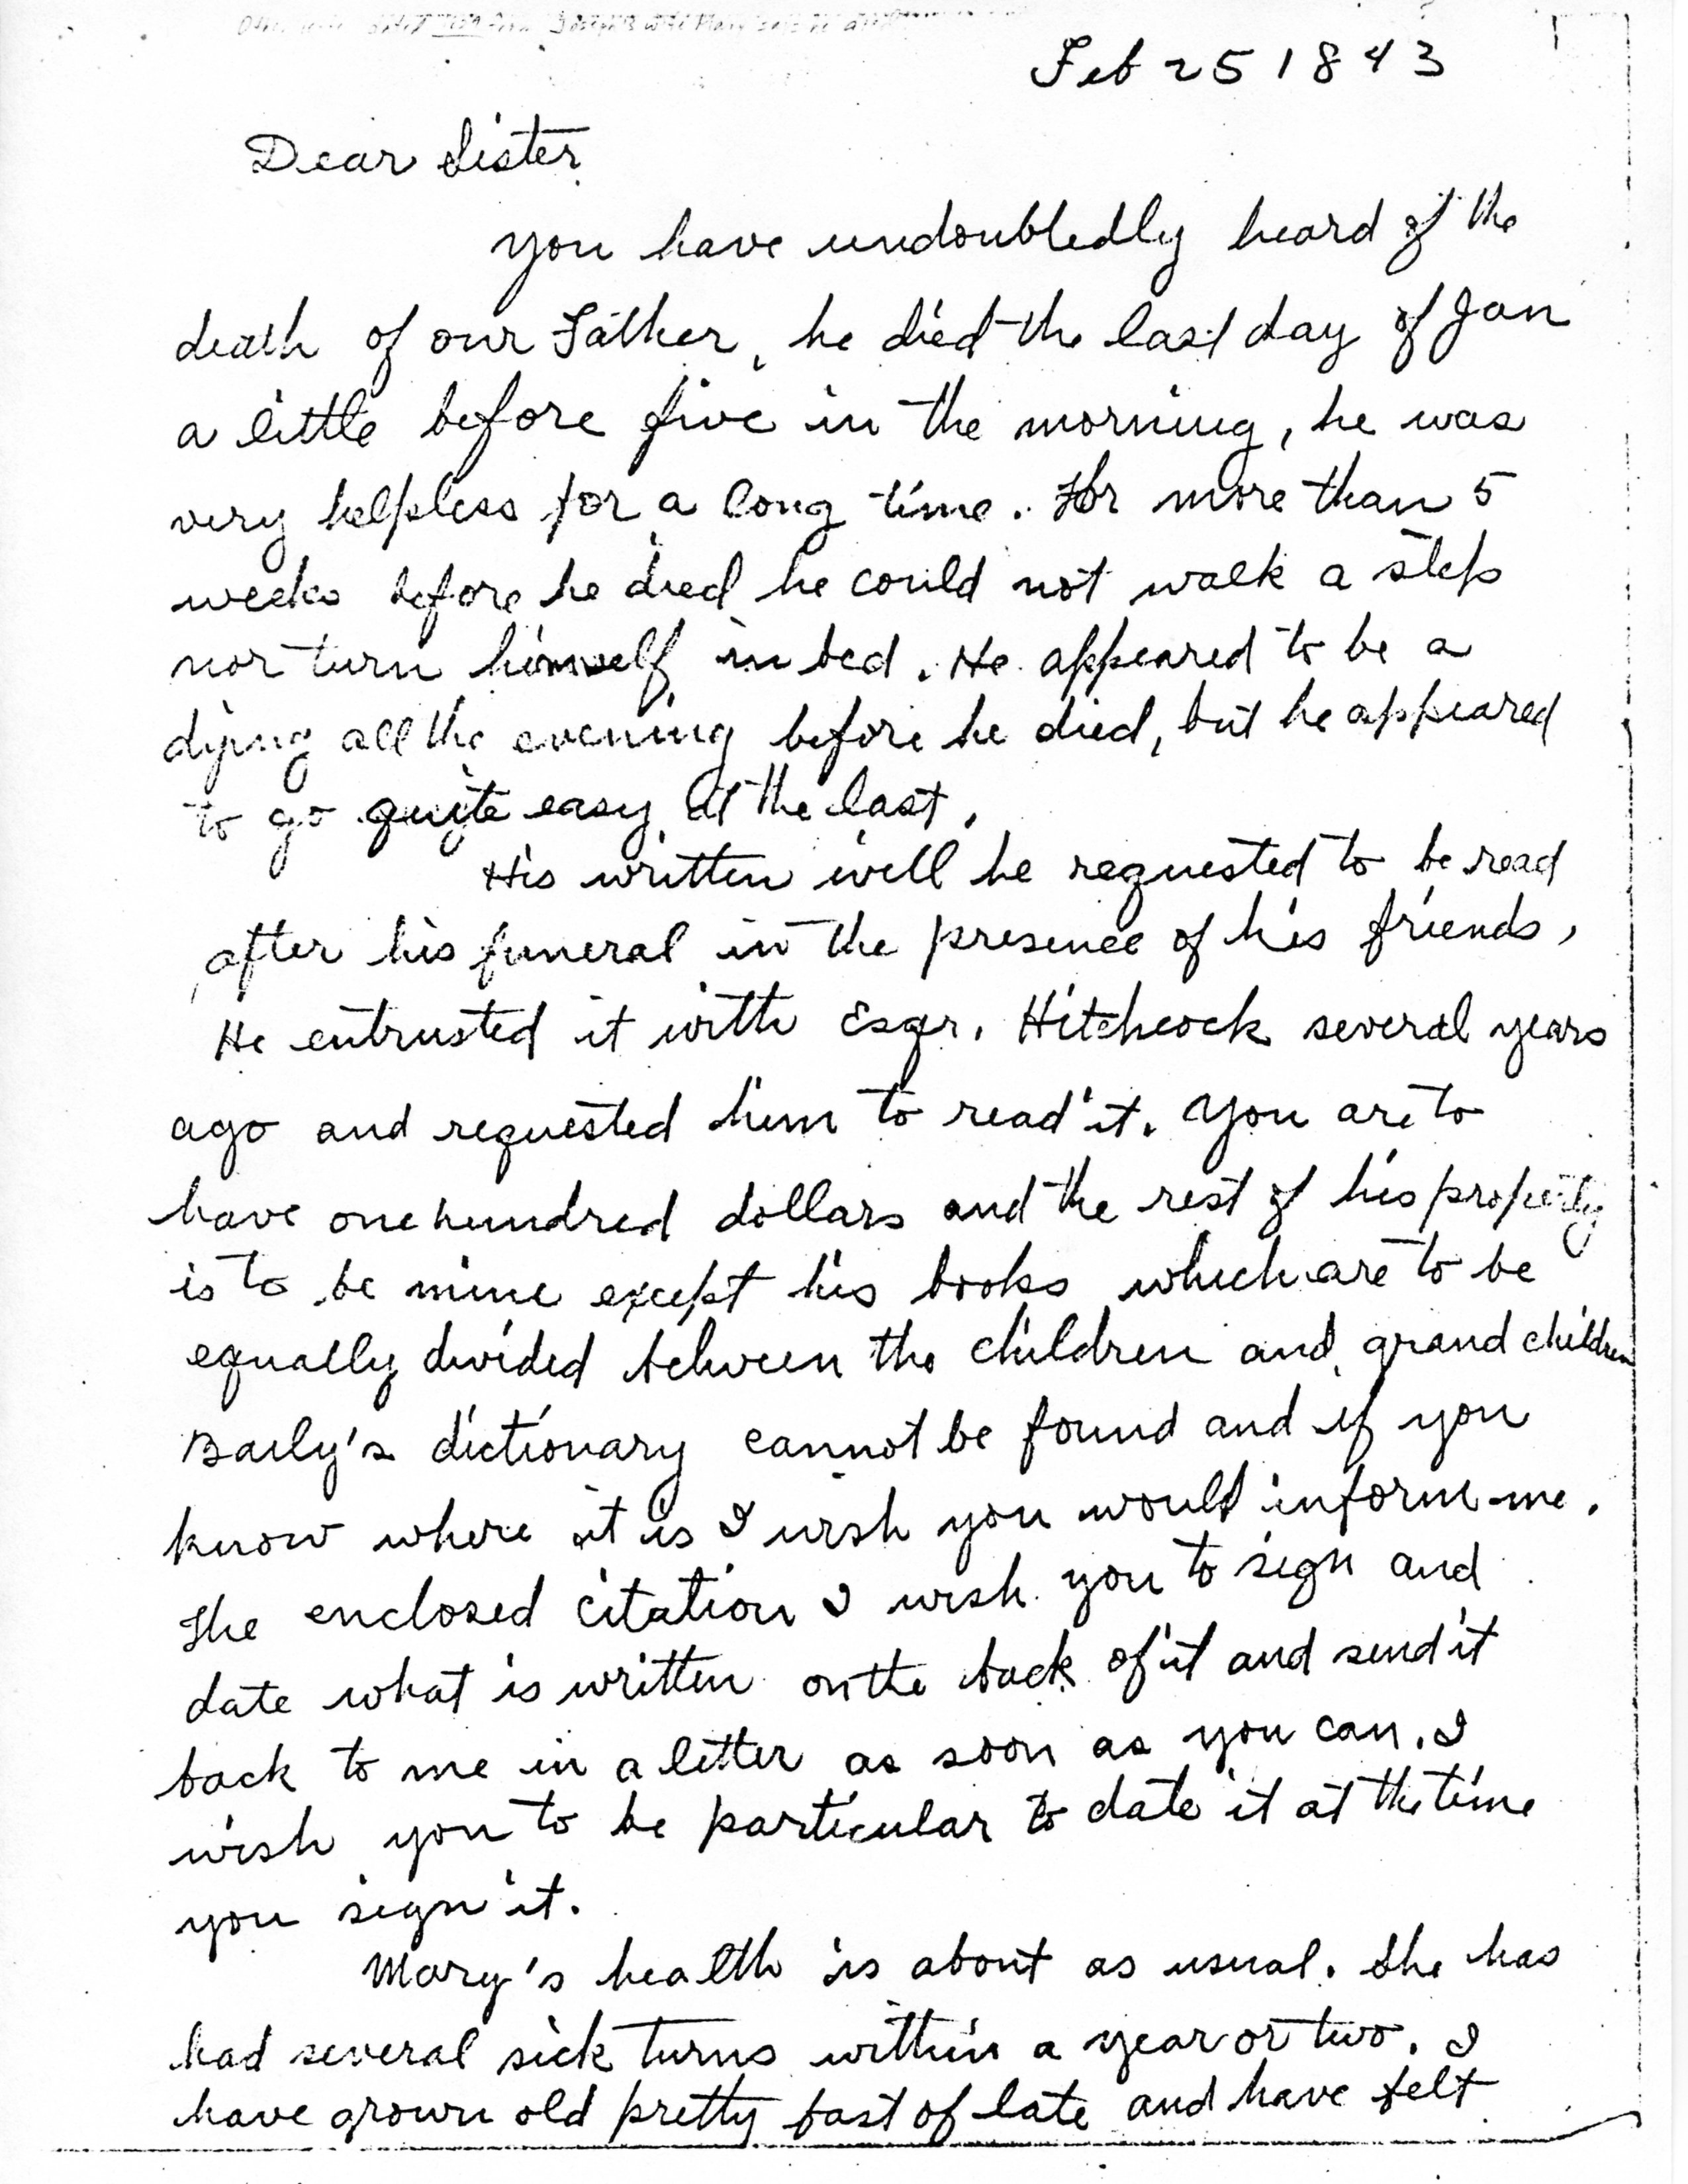 Feb 25 1843
Dear Sister
You have undoubledly heard of the
death of our Father, he died the last day of Jan
a little before five in the morning, he was
very helpless for a long time. For more than 5
weeks before he died he could not walk a step
nor turn himself in bed. He appeared to be a
dying all the evening before he died, but he appeared
to go quite easy at the last.
His written will he requested to be read
after his funeral in the presence of his friends,
He entrusted it with Esqr. Hitchcock several years
ago and requested him to read it. You are to
have one hundred dollars and the rest of his property
is to be mine except his books which are to be
equally divided between the children and grand children
Baily's dictionary cannot be found and if you
know where it is I wish you would inform me.
The enclosed citation I wish you to sign and
date what is written on the back of it and send it
back to me in a letter as soon as you can. I
wish you to be particular to date it at the time
you sign it.
Mary's health is about as usual. She has
had several sick turns within a year or two. I
have grown old pretty fast of late and have felt